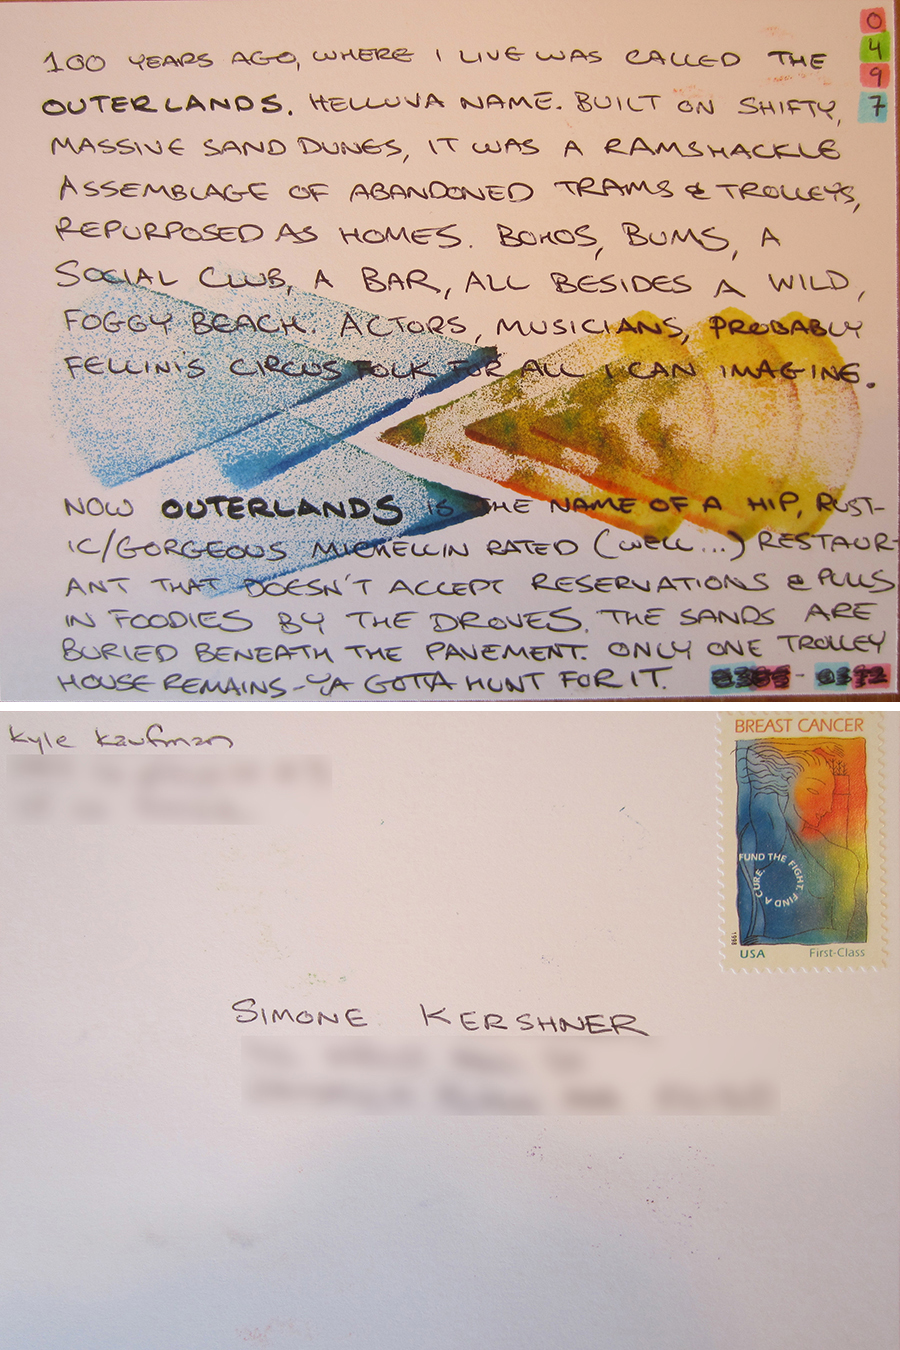 0
4
9
7
100 YEARS AGO, WHERE I LIVE WAS CALLED THE
OUTERLANDS. HELLUVA NAME. BUILT ON SHIFTY,
MASSIVE SAND DUNES, IT WAS A RAMSHACKLE
ASSEMBLAGE OF ABANDONED TRAMS & TROLLEYS,
REPURPOSED AS HOMES. BOHOS, BUMS, A
SOCIAL CLUB, A BAR, ALL BESIDES A WILD,
FOGGY BEACH. ACTORS, MUSICIANS, PROBABLY
FELLINI'S CIRCUS FOLK FOR ALL I CAN IMAGINE.
NOW OUTERLANDS IS THE NAME OF A HIP, RUST-
IC/GORGEOUS MICHELLIN RATED (WELL...) RESTAUR-
ANT THAT DOESN'T ACCEPT RESERVATIONS & PULLS
IN FOODIES BY THE DROVES. THE SANDS ARE
BURIED BENEATH THE PAVEMENT. ONLY ONE TROLLEY
HOUSE REMAINS - YA GOTTA HUNT FOR IT.
Kyle Kaufman
BREAST CANCER
FUND THE FIGHT. FIND A CURE.
1998
USA First-Class
SIMONE KERSHNER